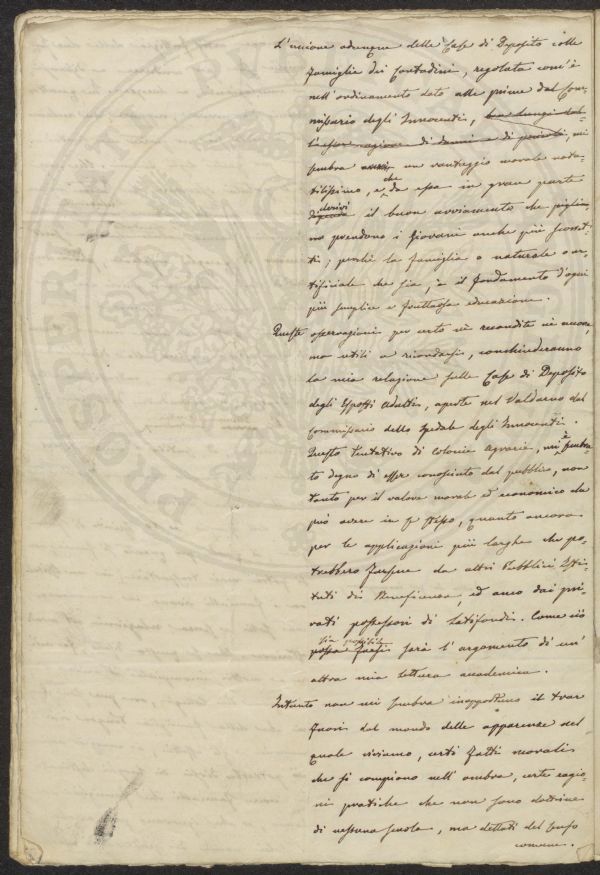 L'unione adunque delle Case di Deposito colle
famiglie dei Contadini, regolata com'è
nell'ordinamento dato alle prime dal Com-
missario degli Innocenti, ben lungi dal-
l'esser cagione di danni e di pericoli, mi
sembra un vantaggio morale note-
tilissimo, e che da essa in gran parte
derivi il buon avviamento che piglia-
no prendono i Giovani anche più scorret-
ti; perchè la famiglia o naturale o ar-
tificiale che sia, è il fondamento d'ogni
più semplice e fruttuosa educazione.
Queste osservazioni per certo nè recondite nè nuove,
ma utili a ricordarsi, conchiuderanno
la mia relazione sulle Case di Deposito
degli Esposti Adulti, aperte nel Valdarno dal
Commissario dello Spedale degli Innocenti.
Questo tentativo di Colonie agrarie, mi è sembra-
to degno di esser conosciuto dal pubblico, non
tanto per il valore morale ed economico che
può avere in se stesso, quanto ancora
per le applicazioni più larghe che po-
trebbero farsene da altri Pubblici Isti-
tuti di Beneficenza, ed anco dai pri-
vati possessori di Latifondi. Come ciò
sia possibile
possa farsi sarà l'argomento di un'
altra mia lettura accademica.
Intanto non mi sembra inopportuno il trar
fuori dal mondo delle apparenze nel
quale viviamo, certi fatti morali
che si compiono nell'ombra, certe cagio-
ni pratiche che non sono dottrine
di nessuna scuola, ma dettati del senso
comune.